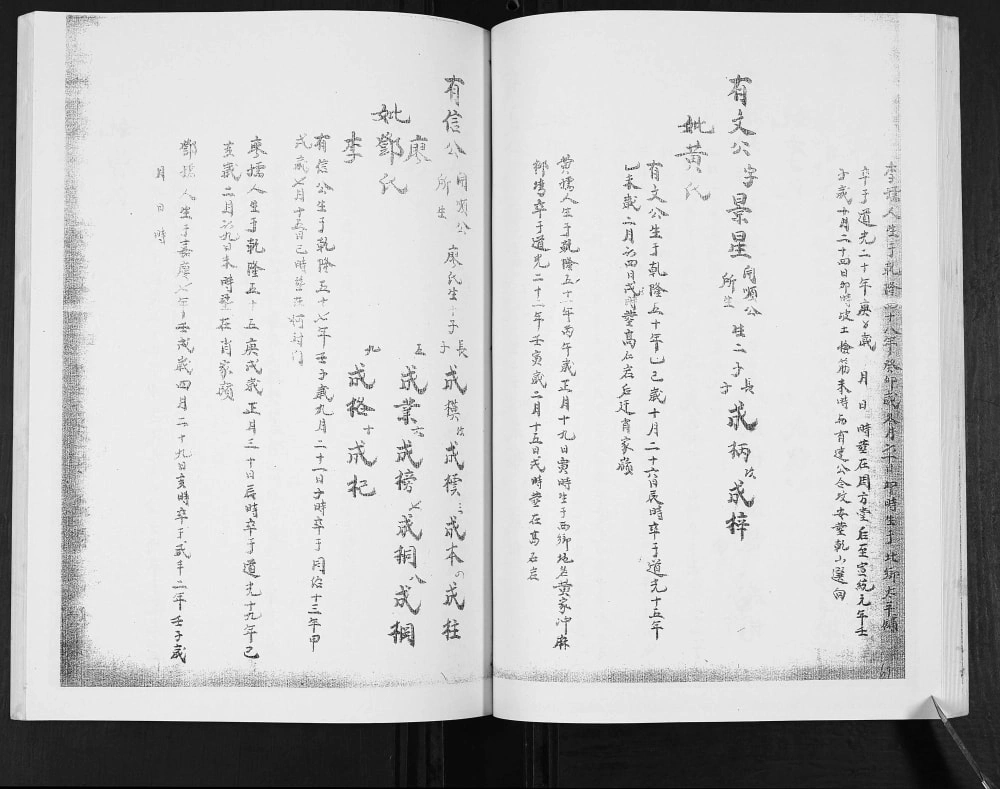 李孺人生于乾隆四十八年癸卯歲八月廿日卯時生于北鄉大平
卒于道光二十年庚子歲 月 日 時塟在周方堂后至宣統元年壬
子歲十月二十四日卯時坡土撿葬未時与有建公合坟安塟乾山巽向
有文公字景星同順公所生 生二子長子成柄次成梓
妣黄氏
有文公生于乾隆五十年乙巳歲十月二十六日辰時卒于道光十五年
乙未歲二月初四日戌時塟高石岩后迁肖家嶺
黄孺人生于乾隆五十一年丙午歲正月十九日寅時生于西鄉地名黄家冲麻
卒于道光二十二年壬寅歲二月十五日戌時塟在高石岩
有信公同順公所生 廖氏生十子長子成模次成樸三成本四成柱
廖
妣鄧氏 五成業六成榜七成桐八成桐
李 九成格十成杞
有信公生于乾隆五十七年壬子歲九月二十一日子時卒于同治十三年甲
戌歲七月十五日巳時塟
廖孺人生于乾隆五十五庚戌歲正月三十日辰時卒于道光十九年己
亥歲二月初九日未時塟在肖家嶺
鄧孺人生于嘉慶七年壬戌歲四月二十九日亥時卒于咸丰二年壬子歲
月 日 時